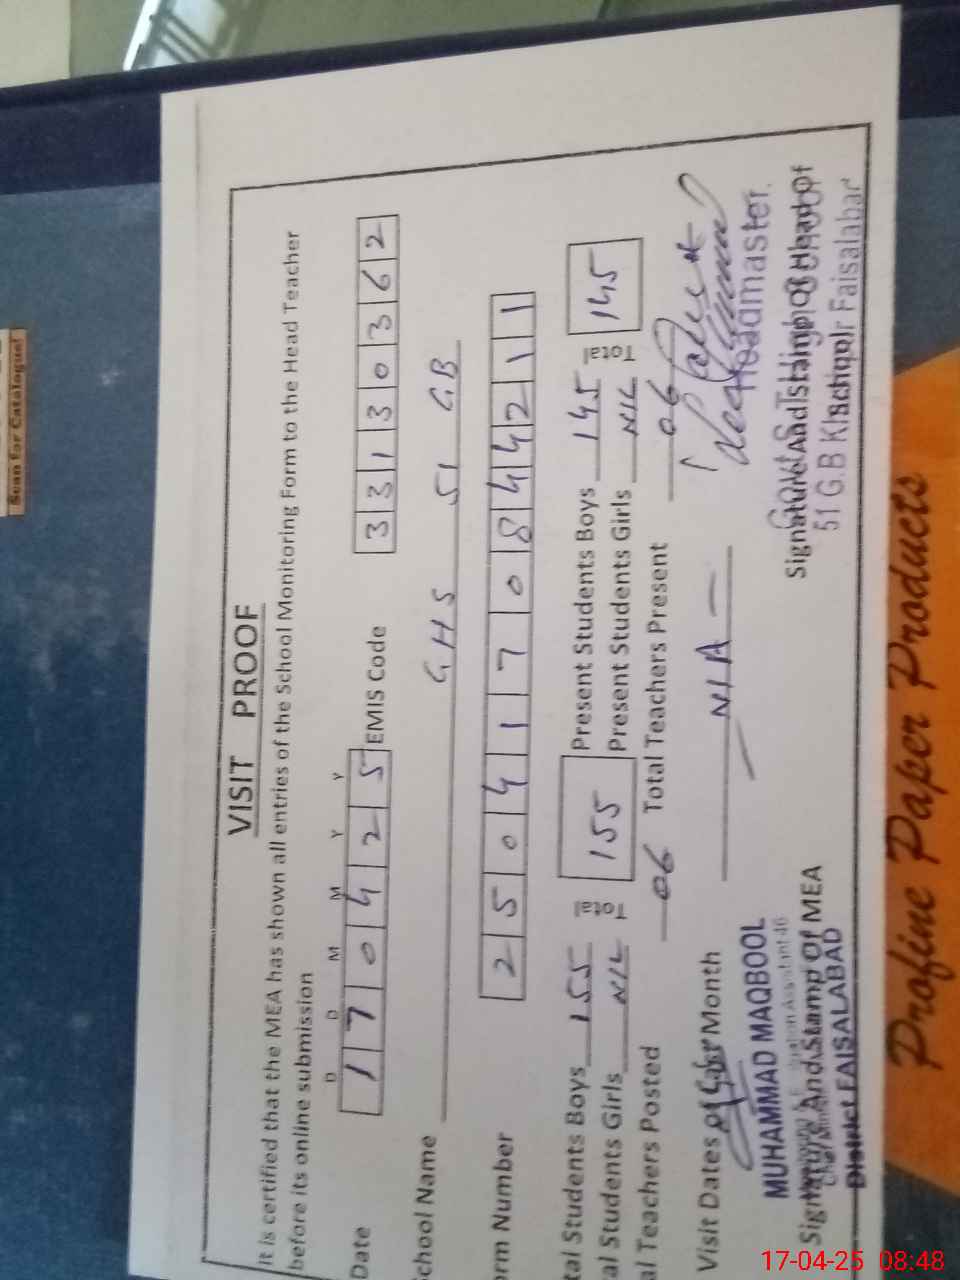 Scan for Catalogue!
VISIT PROOF
It is certified that the MEA has shown all entries of the School Monitoring Form to the Head Teacher
before its online submission
D D M M Y Y
Date 1 7 0 4 2 5 EMIS Code 3 3 1 3 0 3 6 2
chool Name GHS 51 GB
orm Number 2 5 0 4 1 7 0 8 4 4 2 1 1
tal Students Boys 155 Total 155 Present Students Boys 145 Total 145
al Students Girls NIL Present Students Girls NIL
al Teachers Posted 06 Total Teachers Present 06
Visit Dates of Month N/A
MUHAMMAD MAQBOOL Headmaster.
Signature And Stamp Of MEA Signature And Stamp Of Head Of
District FAISALABAD School
51 G.B Faisalabad
Profine Paper Products
17-04-25 08:48